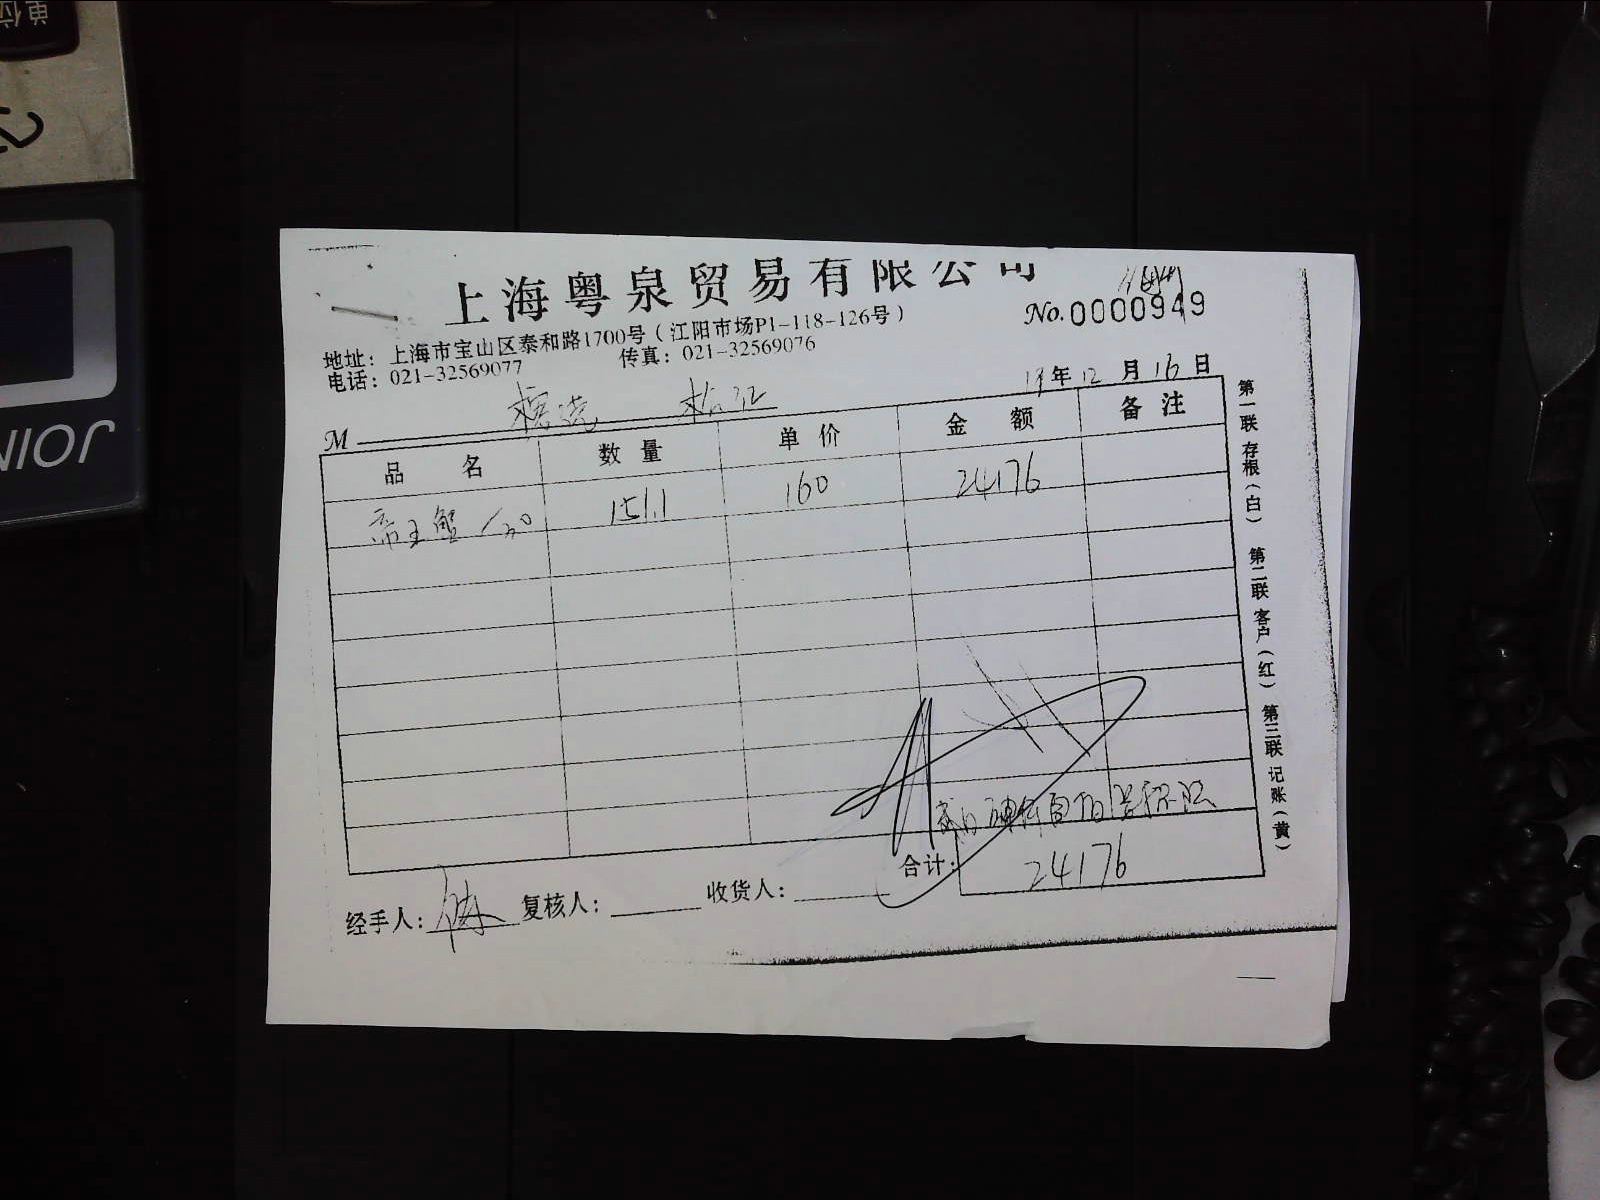 单位
JOIN
上海粤泉贸易有限公司
No.0000949
地址：上海市宝山区泰和路1700号（江阳市场P1-118-126号）
电话：021-32569077 传真：021-32569076
19年12月16日
M
品名 数量 单价 金额 备注
帝王蟹 151.1 160 24176
合计：24176
经手人： 复核人： 收货人：
第一联 存根（白） 第二联 客户（红） 第三联 记账（黄）